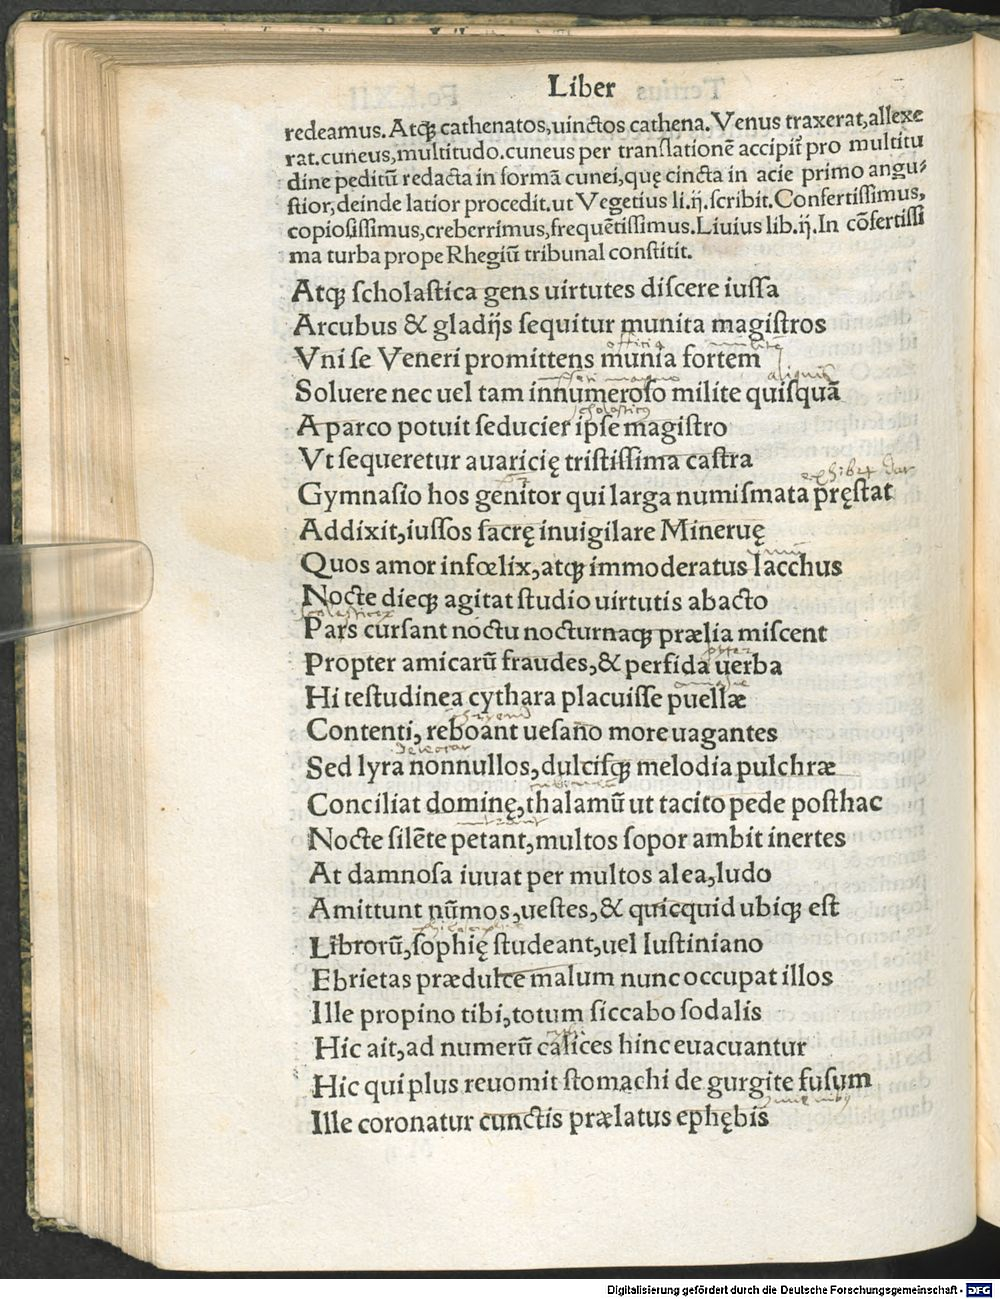 Liber
redeamus. Atqꝫ cathenatos,uinctos cathena. Venus traxerat,allexe
rat.cuneus,multitudo.cuneus per translationē accipit̃ pro multitu
dine peditū redacta in formā cunei,quę cincta in acie primo angu⸗
stior,deinde latior procedit.ut Vegetius li.ij.scribit.Confertissimus,
copiosissimus,creberrimus,frequētissimus.Liuius lib.ij.In cōfertissi
ma turba prope Rhegiū tribunal constitit.
Atqꝫ scholastica gens uirtutes discere iussa
Arcubus & gladijs sequitur munita magistros
officia
Vni se Veneri promittens munia fortem
aliquis
Soluere nec uel tam innumeroso milite quisquā
scholasticus
A parco potuit seducier ipse magistro
Vt sequeretur auaricię tristissima castra
Gymnasio hos genitor qui larga numismata pręstat
Addixit,iussos sacrę inuigilare Mineruę
Quos amor infœlix,atqꝫ immoderatus Iacchus
Nocte dieqꝫ agitat studio uirtutis abacto
Pars cursant noctu nocturnaqꝫ prælia miscent
Propter amicarū fraudes,& perfida uerba
Hi testudinea cythara placuisse puellæ
Contenti, reboant uesano more uagantes
Sed lyra nonnullos,dulcisqꝫ melodia pulchræ
Conciliat dominę,thalamū ut tacito pede posthac
Nocte silēte petant,multos sopor ambit inertes
At damnosa iuuat per multos alea,ludo
Amittunt nūmos,uestes,& quicquid ubiqꝫ est
Librorū,sophię studeant,uel Iustiniano
Ebrietas prædulce malum nunc occupat illos
Ille propino tibi,totum siccabo sodalis
Hic ait,ad numerū calices hinc euacuantur
Hic qui plus reuomit stomachi de gurgite fusum
Ille coronatur cunctis prælatus ephębis
Digitalisierung gefördert durch die Deutsche Forschungsgemeinschaft - DFG